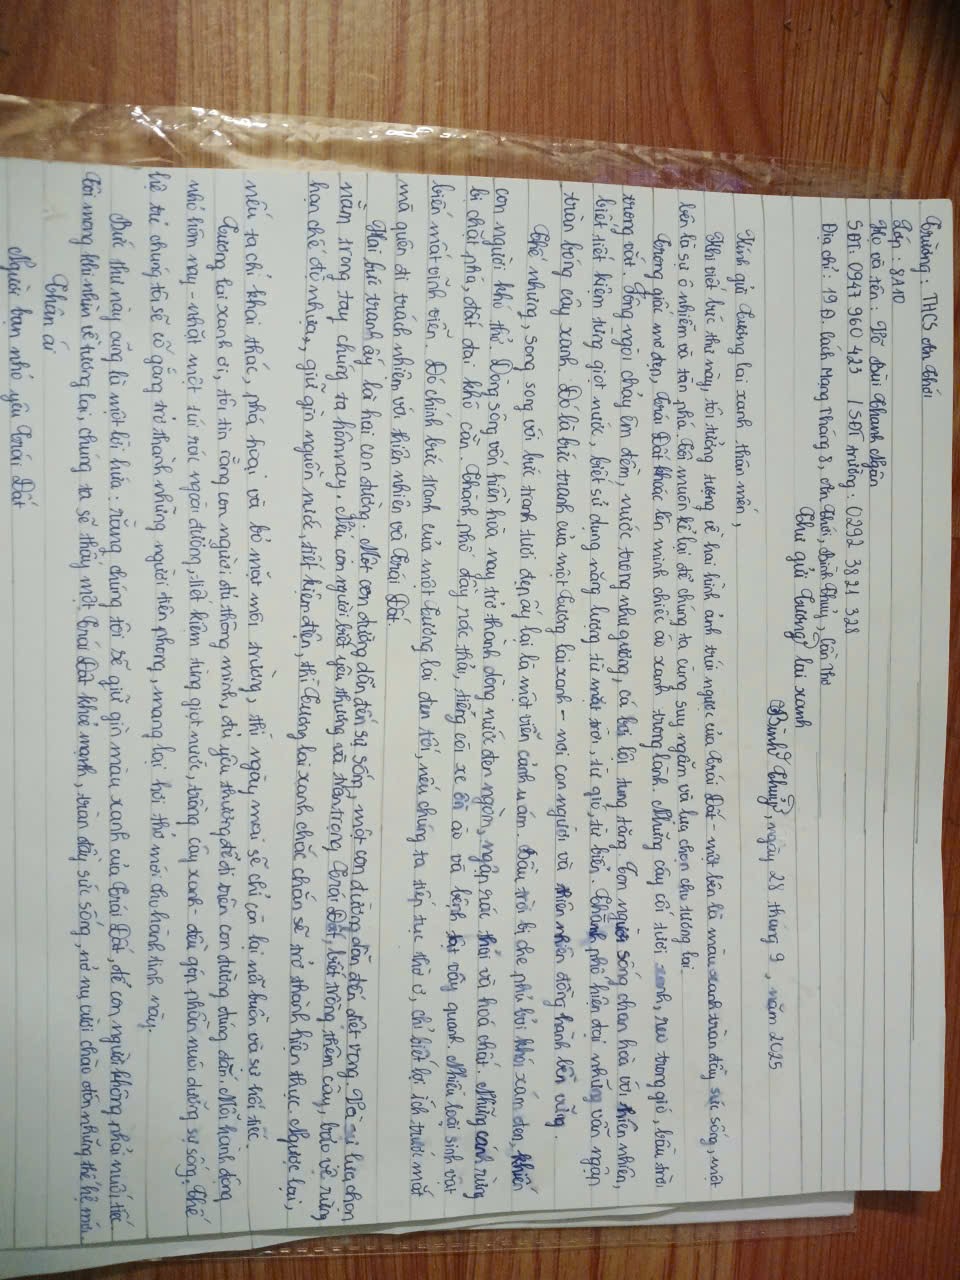 Trường: THCS An Thới
Lớp: 8A10
Họ và tên: Võ Bùi Thanh Ngân
SĐT: 0947 960 423 / SĐT trường: 0292 3821 328
Địa chỉ: 19 Đ. Cách Mạng Tháng 8, An Thới, Bình Thủy, Cần Thơ
Thư gửi Tương lai xanh
Bình Thuỷ, ngày 28 tháng 9, năm 2025
Kính gửi Tương lai xanh thân mến,
Khi viết bức thư này, tôi tưởng tượng về hai hình ảnh trái ngược của Trái Đất - một bên là màu xanh tràn đầy sức sống, một
bên là sự ô nhiễm và tàn phá. Tôi muốn kể lại để chúng ta cùng suy ngẫm và lựa chọn cho tương lai.
Trong giấc mơ đẹp, Trái Đất khoác lên mình chiếc áo xanh trong lành. Những cây cối tươi xanh, reo trong gió, bầu trời
trong vắt. Dòng ngòi chảy êm đềm, nước trong như gương, cá bơi lội tung tăng. Con người sống chan hoà với thiên nhiên,
biết tiết kiệm từng giọt nước, biết sử dụng năng lượng từ mặt trời, từ gió, từ biển. Thành phố hiện đại nhưng vẫn ngập
tràn bóng cây xanh. Đó là bức tranh của một Tương lai xanh - nơi con người và thiên nhiên đồng hành bền vững.
Thế nhưng, song song với bức tranh tươi đẹp ấy lại là một viễn cảnh u ám. Bầu trời bị che phủ bởi khói xám đen, khiến
con người khó thở. Dòng sông vốn hiền hoà nay trở thành dòng nước đen ngòm, ngập rác thải và hoá chất. Những cánh rừng
bị chặt phá, đất đai khô cằn. Thành phố đầy rác thải, tiếng còi xe ồn ào và bệnh tật vây quanh. Nhiều loài sinh vật
biến mất vĩnh viễn. Đó chính bức tranh của một Tương lai đen tối, nếu chúng ta tiếp tục thờ ơ, chỉ biết lợi ích trước mắt
mà quên đi trách nhiệm với thiên nhiên và Trái Đất.
Hai bức tranh ấy là hai con đường. Một con đường dẫn đến sự sống, một con đường dẫn đến diệt vong. Và sự lựa chọn
nằm trong tay chúng ta hôm nay. Nếu con người biết yêu thương và trân trọng Trái Đất, biết trồng thêm cây, bảo vệ rừng
hạn chế đồ nhựa, giữ gìn nguồn nước, tiết kiệm điện, thì Tương lai xanh chắc chắn sẽ trở thành hiện thực. Ngược lại,
nếu ta chỉ khai thác, phá hoại và bỏ mặt môi trường, thì ngày mai sẽ chỉ còn lại nỗi buồn và sự hối tiếc.
Tương lai xanh ơi, tôi tin rằng con người đủ thông minh, đủ yêu thương để đi trên con đường đúng đắn. Mỗi hành động
nhỏ hôm nay - nhặt một túi rác ngoài đường, tiết kiệm từng giọt nước, trồng cây xanh - đều góp phần nuôi dưỡng sự sống. Thế
hệ trẻ chúng tôi sẽ cố gắng trở thành những người tiên phong, mang lại hơi thở mới cho hành tinh này.
Bức thư này cũng là một lời hứa: rằng chúng tôi sẽ giữ gìn màu xanh của Trái Đất, để con người không phải nuối tiếc
Tôi mong khi nhìn về tương lai, chúng ta sẽ thấy một Trái Đất khoẻ mạnh, tràn đầy sức sống, nở nụ cười chào đón những thế hệ mới.
Thân ái
Người bạn nhỏ yêu Trái Đất